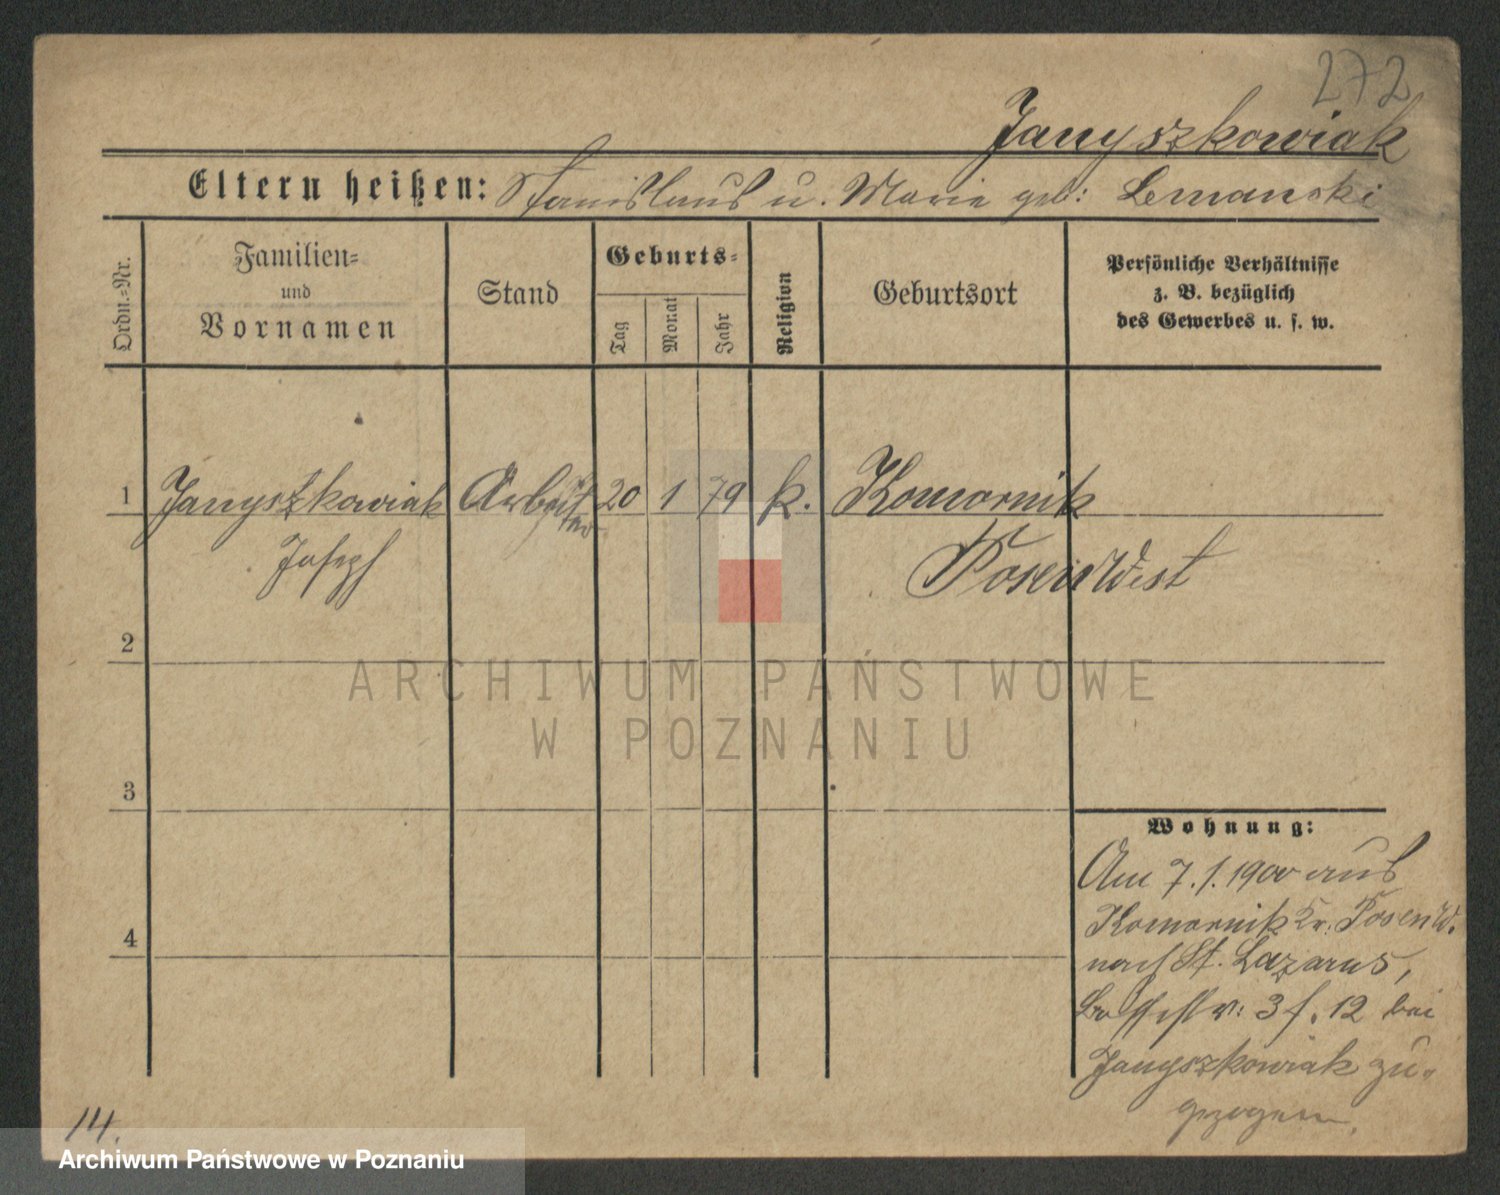 272
Janyszkowiak
Eltern heißen: Stanislaus u. Marie geb: Lemanski
Ordn.-Nr.
Familien-
und
Vornamen
Stand
Geburts-
Tag
Monat
Jahr
Religion
Geburtsort
Persönliche Verhältnisse
z. B. bezüglich
des Gewerbes u. s. w.
1 Janyszkowiak Arbeiter 20 1 79 k. Komornik
Joseph Posen West
2
ARCHIWUM PAŃSTWOWE
W POZNANIU
3
Wohnung:
Am 7. 1. 1900 aus
Komornik Kr. Posen W.
4
nach St. Lazarus,
3 12 bei
Janyszkowiak zu-
gezogen.
14.
Archiwum Państwowe w Poznaniu